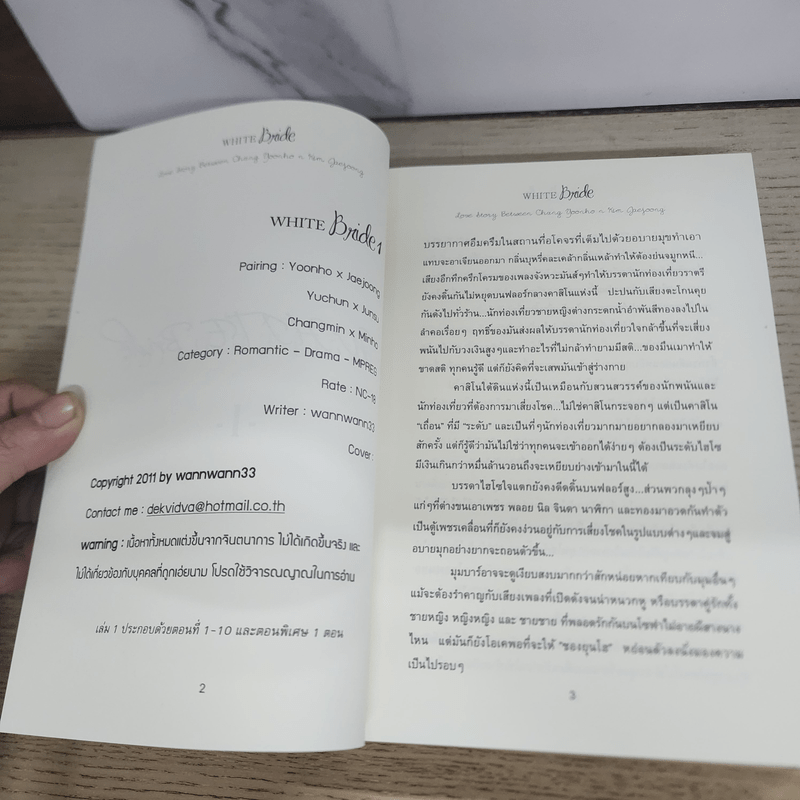 WHITE Bride
Love Story Between Chang Yoonho n Kim Jaejoong
WHITE Bride 1
Pairing : Yoonho x Jaejoong
Yuchun x Junsu
Changmin x Minho
Category : Romantic - Drama - MPREG
Rate : NC-18
Writer : wannwann33
Cover :
Copyright 2011 by wannwann33
Contact me : dekvidva@hotmail.co.th
warning : เนื้อหาทั้งหมดแต่งขึ้นจากจินตนาการ ไม่ได้เกิดขึ้นจริง และ
ไม่ได้เกี่ยวข้องกับบุคคลที่ถูกเอ่ยนาม โปรดใช้วิจารณญาณในการอ่าน
เล่ม 1 ประกอบด้วยตอนที่ 1-10 และตอนพิเศษ 1 ตอน
2
WHITE Bride
Love Story Between Chang Yoonho n Kim Jaejoong
บรรยากาศอึมครึมในสถานที่อโคจรที่เต็มไปด้วยอบายมุขทำเอา
แทบจะอาเจียนออกมา กลิ่นบุหรี่คละเคล้ากลิ่นเหล้าทำให้ต้องย่นจมูกหนี...
เสียงอึกทึกครึกโครมของเพลงจังหวะมันส์ๆทำให้บรรดานักท่องเที่ยวราตรี
ยังคงดิ้นกันไม่หยุดบนฟลอร์กลางคาสิโนแห่งนี้ ปะปนกับเสียงตะโกนคุย
กันดังไปทั่วร้าน...นักท่องเที่ยวชายหญิงต่างกระดกน้ำอำพันสีทองลงไปใน
ลำคอเรื่อยๆ ฤทธิ์ของมันส่งผลให้บรรดานักท่องเที่ยวใจกล้าขึ้นที่จะเสี่ยง
พนันไปกับวงเงินสูงๆและทำอะไรที่ไม่กล้าทำยามมีสติ...ของมึนเมาทำให้
ขาดสติ ทุกคนรู้ดี แต่ก็ยังคิดที่จะเสพมันเข้าสู่ร่างกาย
คาสิโนใต้ดินแห่งนี้เป็นเหมือนกับสวนสวรรค์ของนักพนันและ
นักท่องเที่ยวที่ต้องการมาเสี่ยงโชค...ไม่ใช่คาสิโนกระจอกๆ แต่เป็นคาสิโน
“เถื่อน” ที่มี “ระดับ” และเป็นที่ๆนักท่องเที่ยวมากมายอยากลองมาเหยียบ
สักครั้ง แต่ก็รู้ดีว่ามันไม่ใช่ว่าทุกคนจะเข้าออกได้ง่ายๆ ต้องเป็นระดับไฮโซ
มีเงินเกินกว่าหมื่นล้านวอนถึงจะเหยียบย่างเข้ามาในนี้ได้
บรรดาไฮโซใจแตกยังคงดีดดิ้นบนฟลอร์สูง...ส่วนพวกลุงๆป้าๆ
แก่ๆที่ต่างขนเอาเพชร พลอย นิล จินดา นาฬิกา และทองมาอวดกันทำตัว
เป็นตู้เพชรเคลื่อนที่ก็ยังคงง่วนอยู่กับการเสี่ยงโชคในรูปแบบต่างๆและจมสู่
อบายมุกอย่างยากจะถอนตัวขึ้น...
มุมบาร์อาจจะดูเงียบสงบมากกว่าสักหน่อยหากเทียบกับมุมอื่นๆ
แม้จะต้องรำคาญกับเสียงเพลงที่เปิดดังจนน่าหนวกหู หรือบรรดาคู่รักทั้ง
ชายหญิง หญิงหญิง และ ชายชาย ที่พลอดรักกันบนโซฟาไม่อายผีสางนาง
ไหน แต่มันก็ยังโอเคพอที่จะให้ “ชองยุนโฮ” หย่อนตัวลงนั่งมองความ
เป็นไปรอบๆ
3